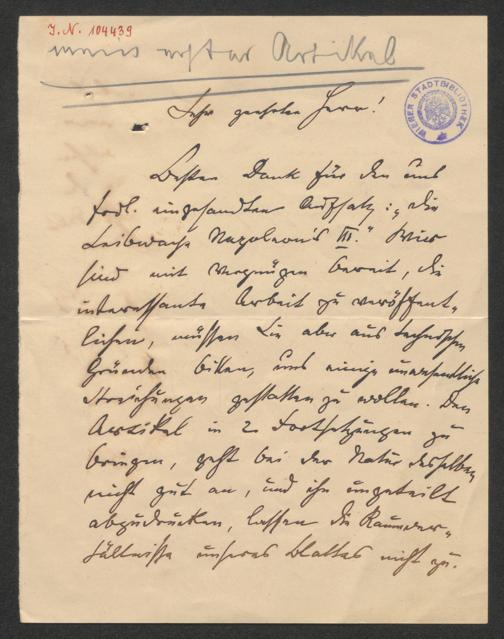 J.N. 104439
mein erster Artikel
WIENER STADTBIBLIOTHEK
Sehr geehrter Herr!
Besten Dank für den uns
frdl. eingesandten Aufsatz: „die
Leibwache Napoleon's III." Wir
sind mit Vergnügen bereit, die
interessante Arbeit zu veröffent-
lichen, müssen Sie aber aus technischen
Gründen bitten, uns einige unwesentliche
Streichungen gestatten zu wollen. Den
Artikel in 2 Fortsetzungen zu
bringen, geht bei der Natur desselben
nicht gut an, und ihn ungeteilt
abzudrucken, lassen die Raumver-
hältnisse unseres Blattes nicht zu.